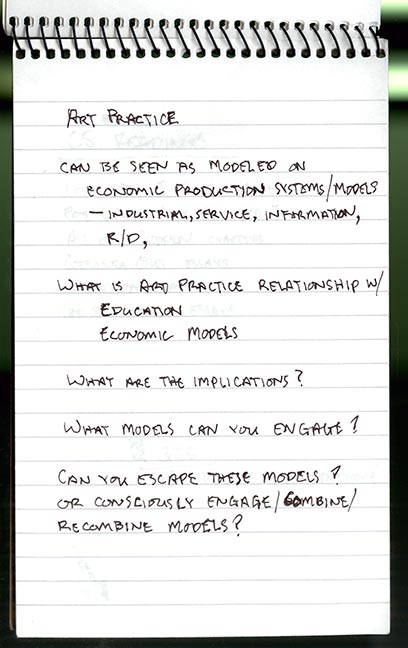 ART PRACTICE
CAN BE SEEN AS MODELED ON
ECONOMIC PRODUCTION SYSTEMS/MODELS
— INDUSTRIAL, SERVICE, INFORMATION,
R/D,
WHAT IS ART PRACTICE RELATIONSHIP W/
EDUCATION
ECONOMIC MODELS
WHAT ARE THE IMPLICATIONS?
WHAT MODELS CAN YOU ENGAGE?
CAN YOU ESCAPE THESE MODELS?
OR CONSCIOUSLY ENGAGE/COMBINE/
RECOMBINE MODELS?